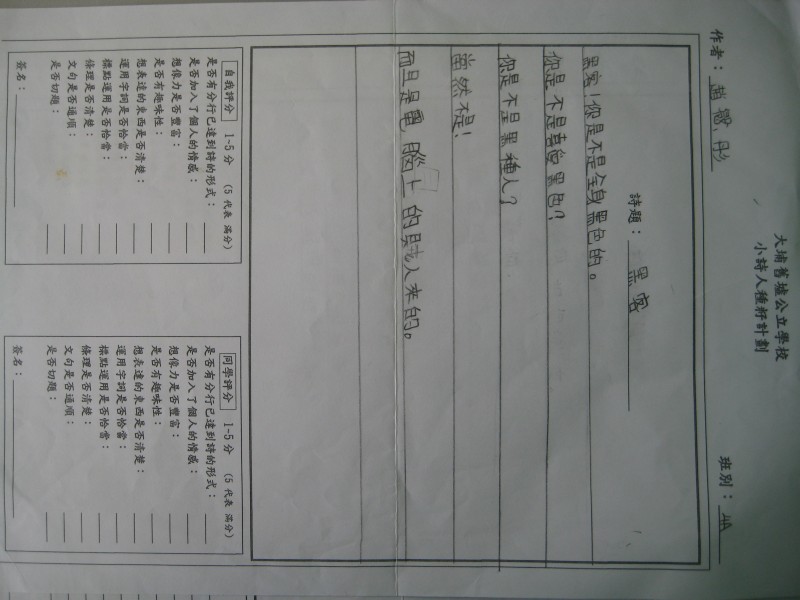 大埔舊墟公立學校
小詩人種籽計劃
作者：趙 彤
班別：4A
詩題：黑客
黑客！你是不是全身黑色的。
你是不是喜愛黑色？
你是不是黑種人？
當然不是！
而且是電腦上的賊人來的。
自我評分 1-5分 (5 代表 滿分)
是否有分行已達到詩的形式：
是否加入了個人的情感：
想像力是否豐富：
是否有趣味性：
想表達的東西是否清楚：
運用字詞是否恰當：
標點運用是否恰當：
條理是否清楚：
文句是否通順：
是否切題：
簽名：
同學評分 1-5分 (5 代表 滿分)
是否有分行已達到詩的形式：
是否加入了個人的情感：
想像力是否豐富：
是否有趣味性：
想表達的東西是否清楚：
運用字詞是否恰當：
標點運用是否恰當：
條理是否清楚：
文句是否通順：
是否切題：
簽名：